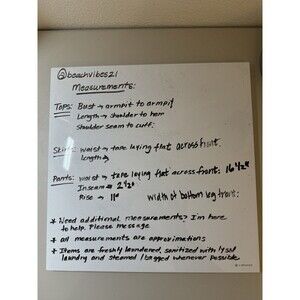 @beachvibes21
Measurements:
Tops: Bust → armpit to armpit
Length → shoulder to hem
Shoulder seam to cuff:
Skirts: waist → tape laying flat across front.
Length →
Pants: waist → tape laying flat across front: 16 1/2"
Inseam →
Rise → 11" Width of bottom leg front:
* Need additional measurements? I'm here
to help. Please message
* All measurements are approximations
* Items are freshly laundered, sanitized with lysol
laundry and steamed / bagged whenever possible